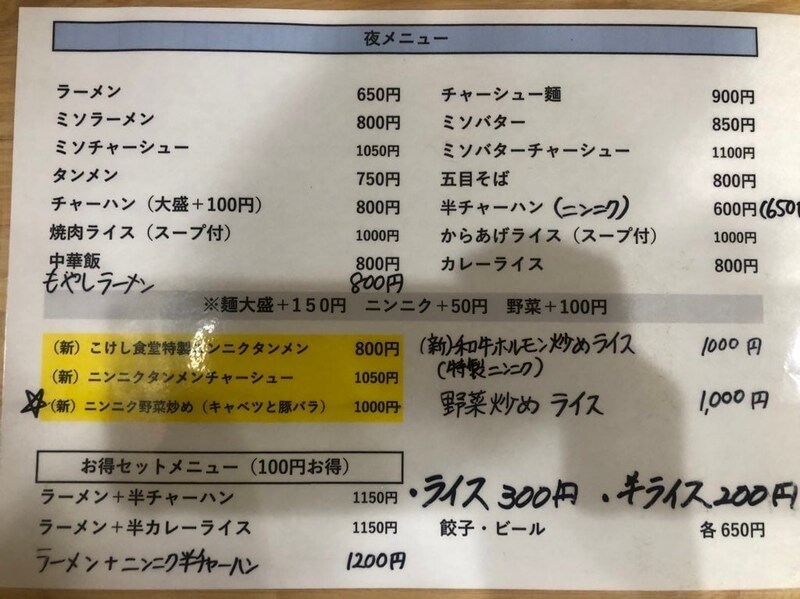 夜メニュー
ラーメン 650円
ミソラーメン 800円
ミソチャーシュー 1050円
タンメン 750円
チャーハン（大盛＋100円） 800円
焼肉ライス（スープ付） 1000円
中華飯 800円
もやしラーメン 800円
チャーシュー麺 900円
ミソバター 850円
ミソバターチャーシュー 1100円
五目そば 800円
半チャーハン（ニンニク） 600円(650円
からあげライス（スープ付） 1000円
カレーライス 800円
※麺大盛＋150円 ニンニク＋50円 野菜＋100円
（新）こけし食堂特製ニンニクタンメン 800円
（新）ニンニクタンメンチャーシュー 1050円
☆（新）ニンニク野菜炒め（キャベツと豚バラ） 1000円
（新）和牛ホルモン炒めライス 1000円
（特製ニンニク）
野菜炒め ライス 1,000円
お得セットメニュー（100円お得）
ラーメン＋半チャーハン 1150円
ラーメン＋半カレーライス 1150円
ラーメン＋ニンニク半チャーハン 1200円
・ライス 300円 ・半ライス 200円
餃子・ビール 各650円